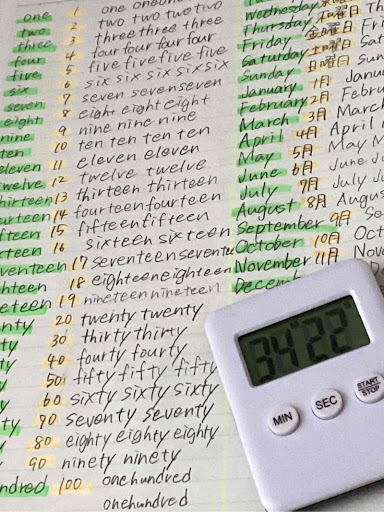 one 1 one one
two 2 two two two two
three 3 three three three
four 4 four four four four
five 5 five five five five
six 6 six six six six six
seven 7 seven seven seven
eight 8 eight eight eight
nine 9 nine nine nine
ten 10 ten ten ten ten
eleven 11 eleven eleven
twelve 12 twelve twelve
thirteen 13 thirteen thirteen
urteen 14 fourteen fourteen
fteen 15 fifteen fifteen
xteen 16 sixteen sixteen
venteen 17 seventeen sevente
hteen 18 eighteen eighteen
eteen 19 nineteen nineteen
nty 20 twenty twenty
ty 30 thirty thirty
ty 40 fourty fourty
y 50 fifty fifty fifty
y 60 sixty sixty sixty
ty 70 seventy seventy
y 80 eighty eighty eighty
90 ninety ninety
ndred 100 onehundred
onehundred
Wednesday 水曜日 Wed
Thursday 木曜日 Th
Friday 金曜日 Friday
Saturday 土曜日 Sat
Sunday 日曜日 Sun
January 1月 Janu
February 2月 Febr
March 3月 March
April 4月 April
May 5月 May M
June 6月 June J
July 7月 July Ju
August 8月 Augus
September 9月 Se
October 10月 Oct
November 11月 Nov
Decem
34 22
MIN
SEC
START
STOP